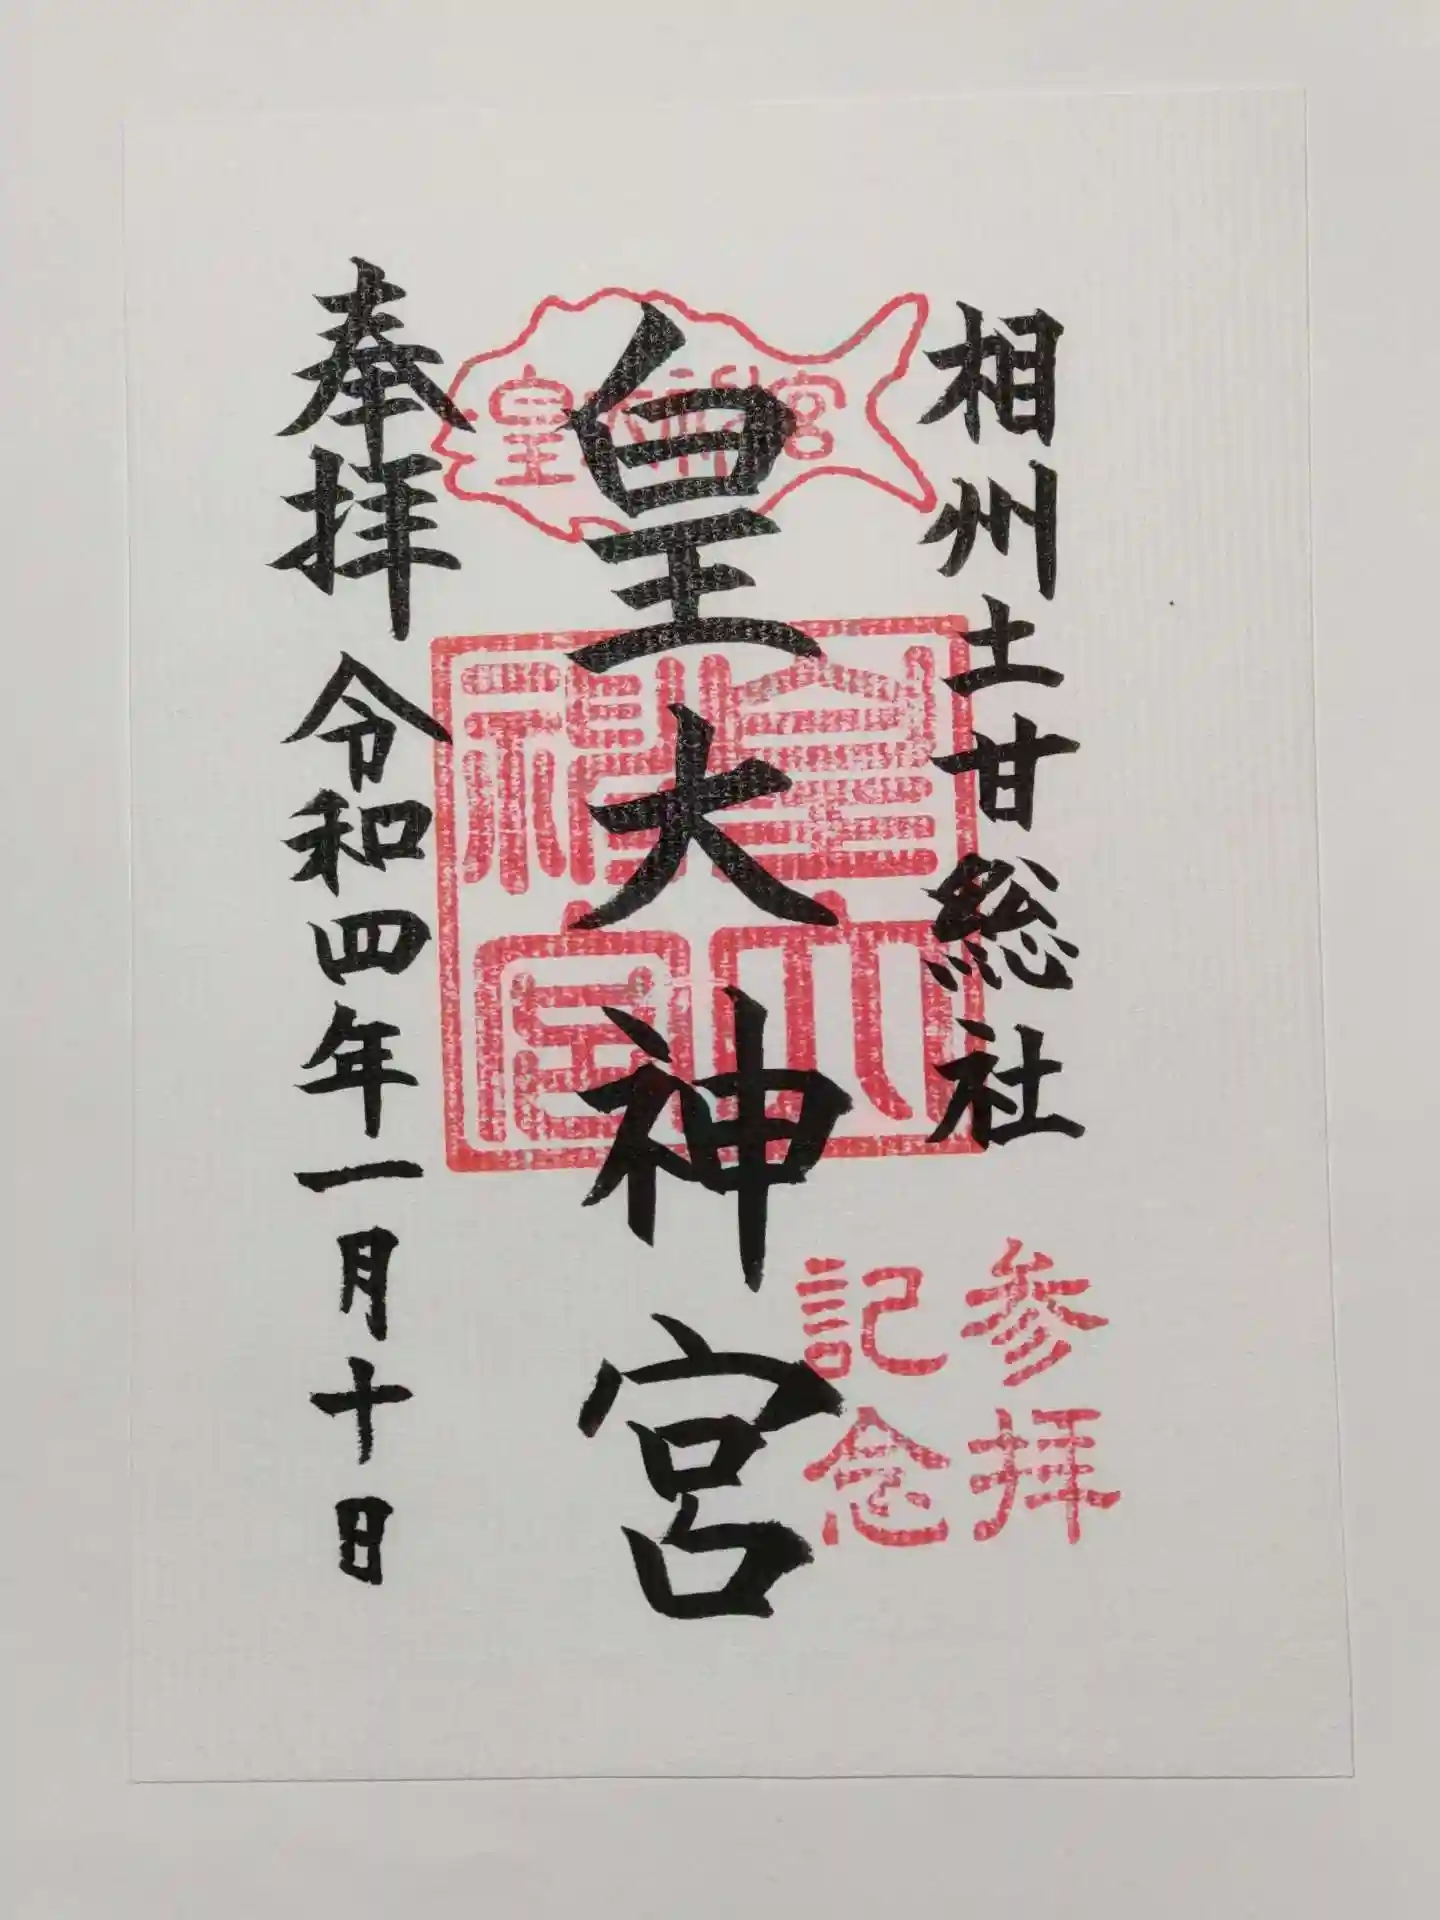 相州土甘総社
皇大神宮
奉拝 令和四年一月十日
皇大神宮
皇大神宮
参拝
記念